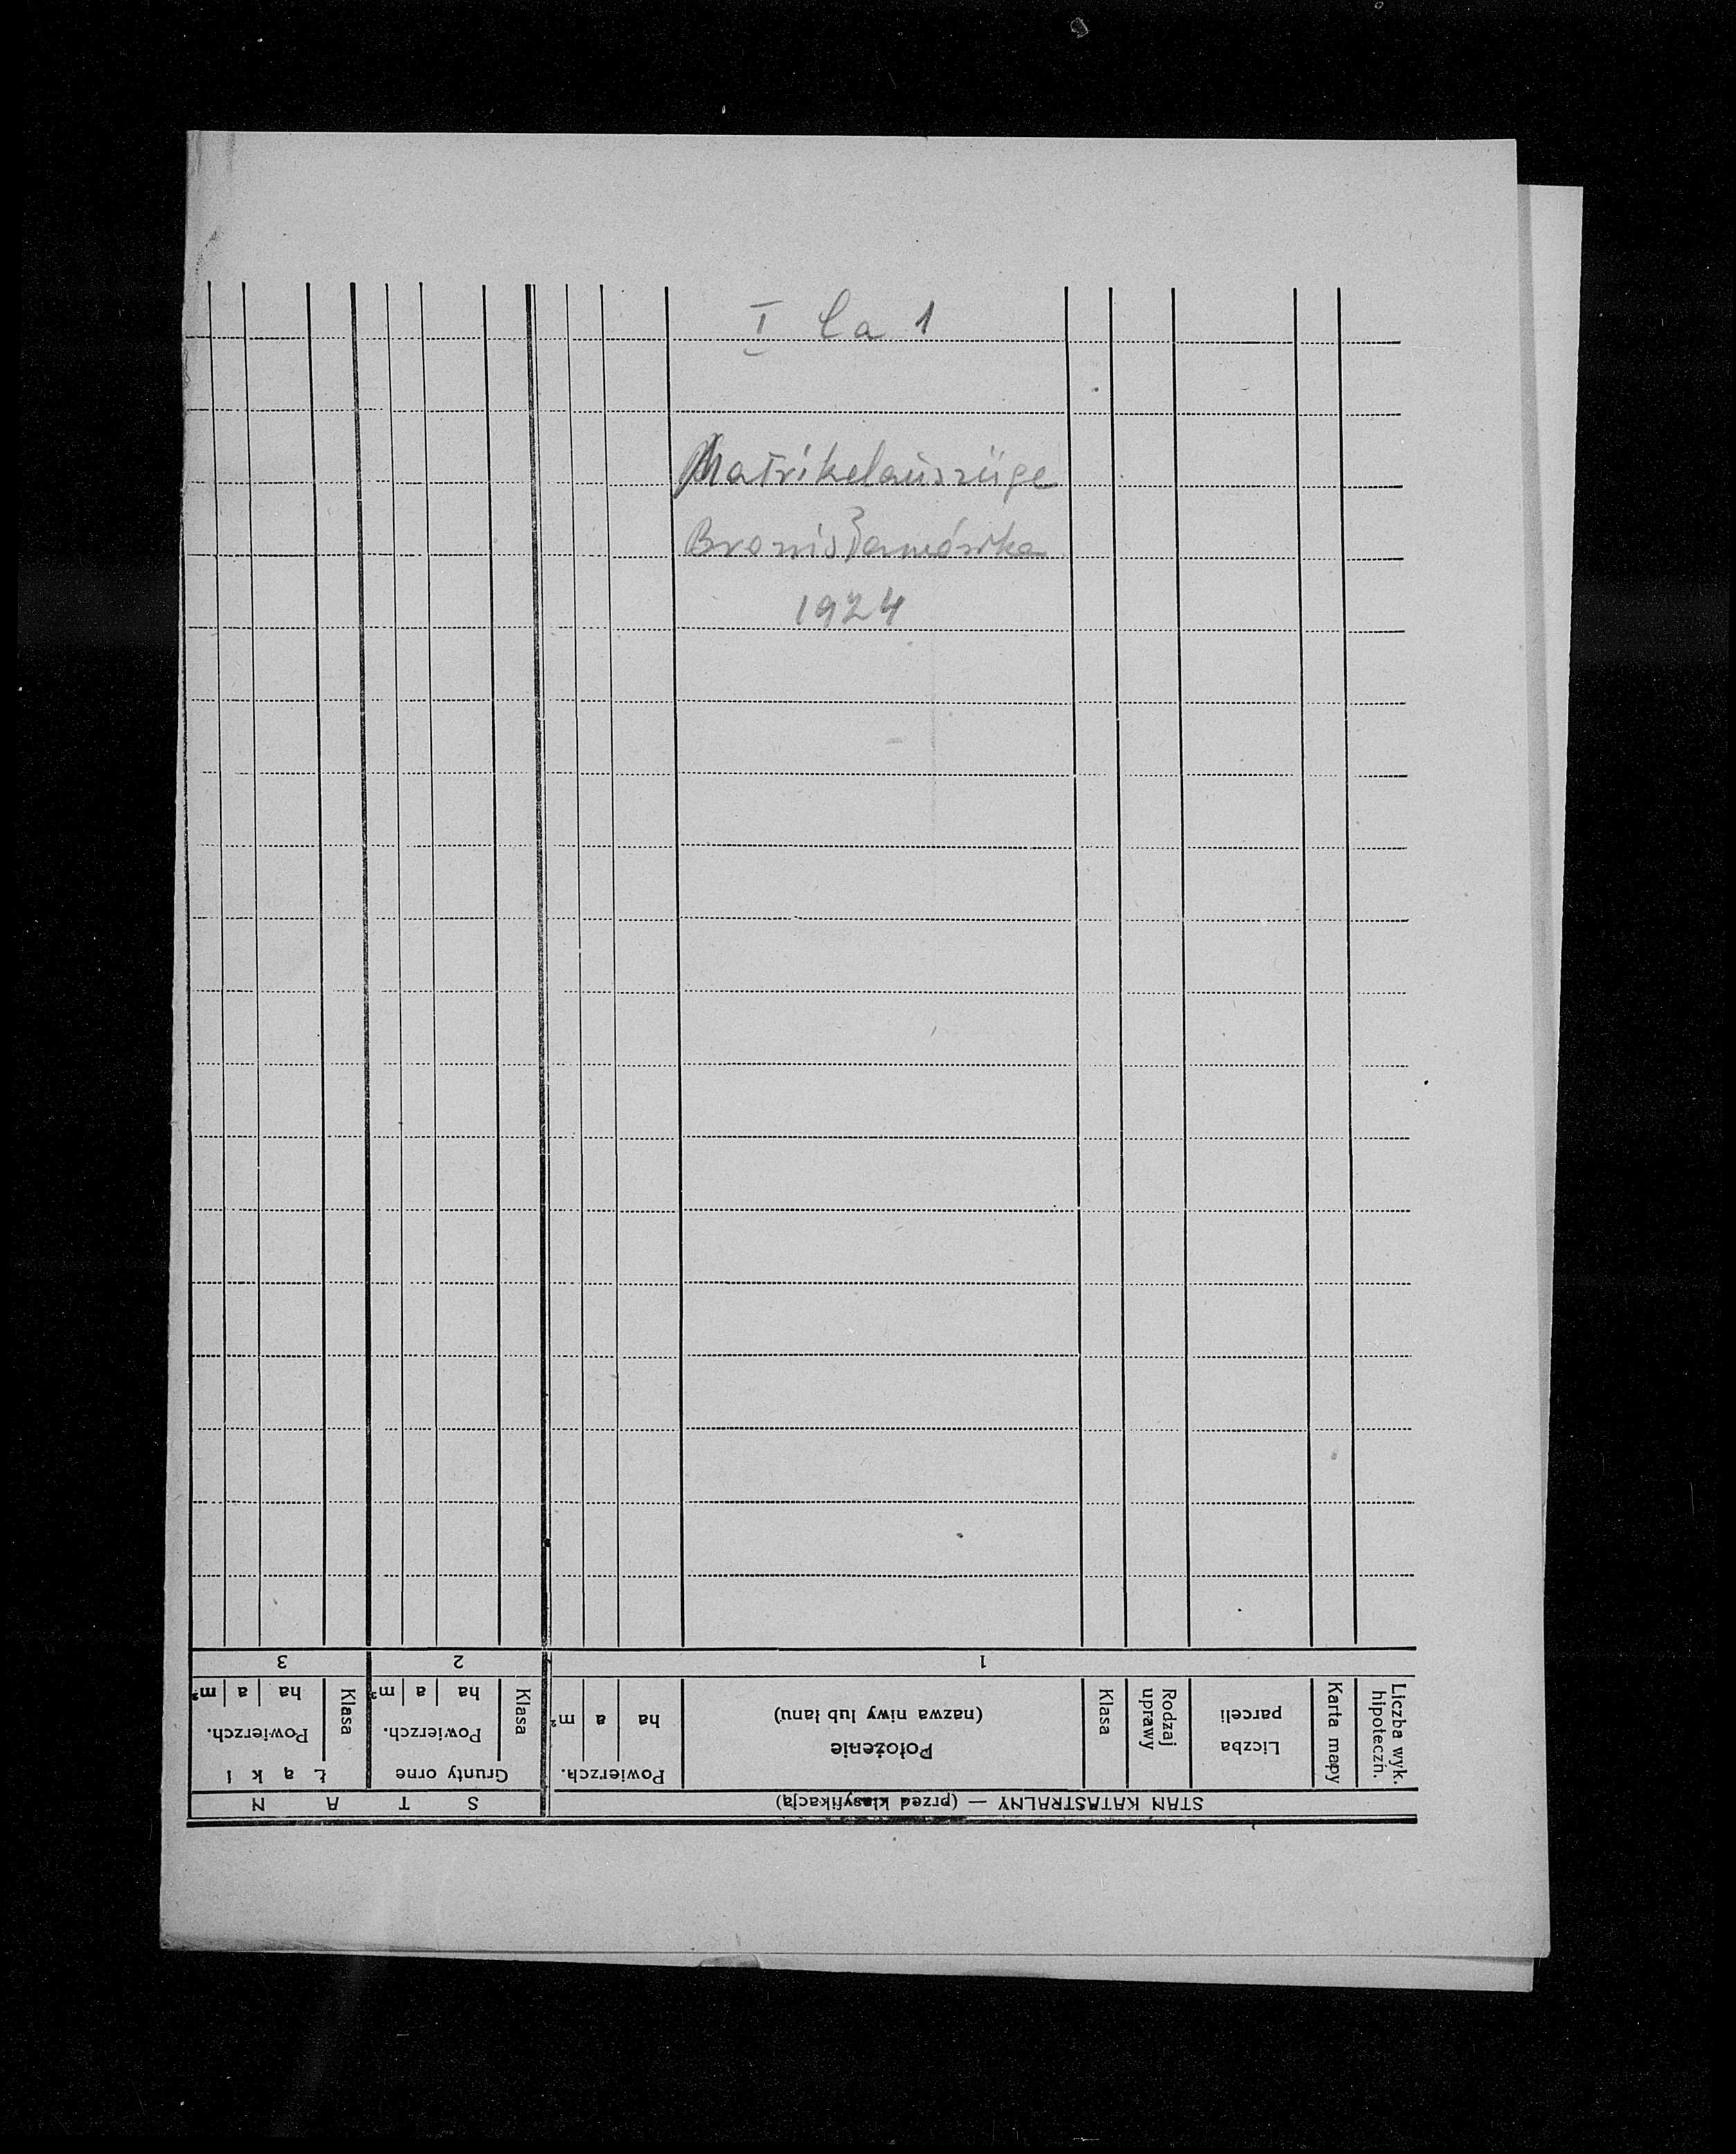 I Ca 1
Matrikelauszüge
Bronisławówka
1924
STAN KATASTRALNY — (przed klasyfikacją)
S T A N
Liczba wyk. hipoteczn.
Karta mapy
Liczba parceli
Rodzaj uprawy
Klasa
Położenie
(nazwa niwy lub łanu)
Powierzch.
ha a m²
Grunty orne
Klasa
Powierzch.
ha a m²
Ł ą k i
Klasa
Powierzch.
ha a m²
1 2 3